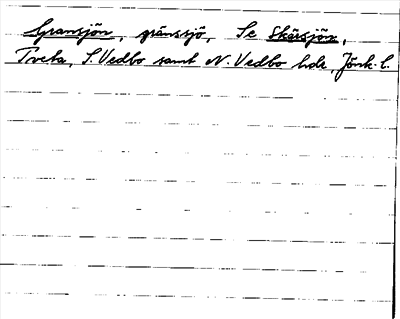 Gransjön, gränssjö, Se Skärsjön,
Tveta, S. Vedbo samt N. Vedbo hde, Jönk. l.